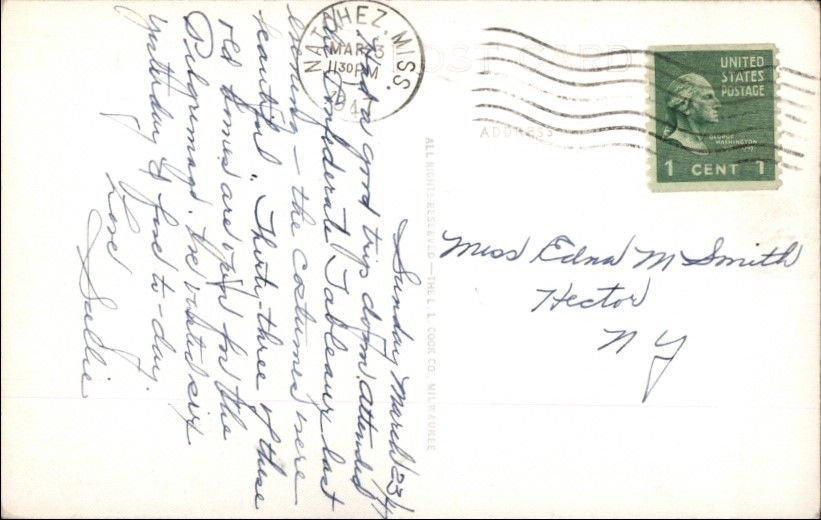 POST CARD
ADDRESS
NATCHEZ, MISS.
MAR 23
11 30 PM
UNITED
STATES
POSTAGE
GEORGE
WASHINGTON
1 CENT 1
Miss Edna M Smith
Hector
N Y
ALL RIGHTS RESERVED — THE L. L. COOK CO. MILWAUKEE
Sunday March 23/
Had a good trip down. attended
the Confederate Tableaux last
evening — the costumes were
beautiful. Thirty-three of these
old homes are open for the
Pilgrimage. We visited six
yesterday & five to-day.
Love
Sallie